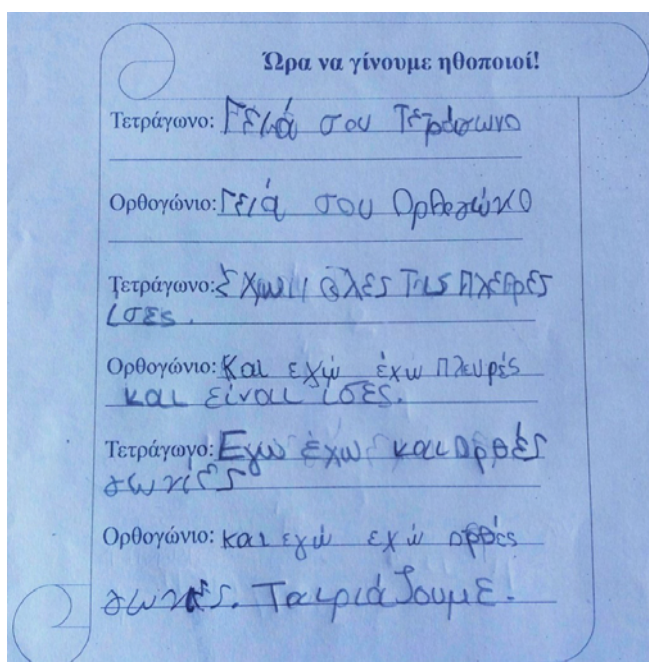 Ώρα να γίνουμε ηθοποιοί!
Τετράγωνο: Γειά σου Τετράγωνο
Ορθογώνιο: Γειά σου Ορθογώνο
Τετράγωνο: Έχω όλες τις πλευρές
ίσες.
Ορθογώνιο: Και εγώ έχω πλευρές
και είναι ίσες.
Τετράγωνο: Εγώ έχω και ορθές
γωνίες
Ορθογώνιο: και εγώ εχώ ορθές
γωνιές. Ταιριάζουμε.